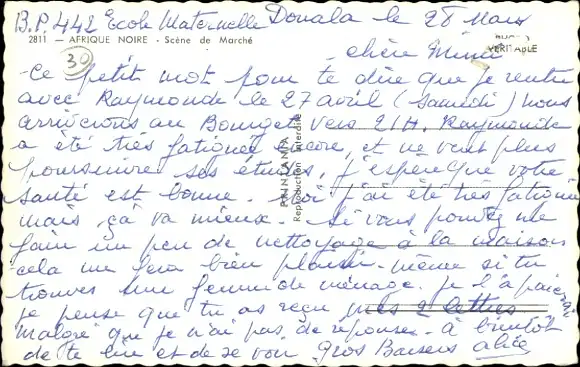 B.P. 442 Ecole Maternelle Douala le 28 Mars
2811 — AFRIQUE NOIRE - Scène de Marché
VERITABLE
30
chère Mimi
Ce petit mot pour te dire que je rentre
avec Raymonde le 27 avril (Samedi) nous
arriverons au Bourget vers 21H. Raymonde
a été très fatiguée encore, et ne veut plus
poursuivre ses études, j'espère que votre
santé est bonne. moi j'ai été très fatiguée
mais ça va mieux. Si vous pouvez me
fair un peu de nettoyage à la maison
cela me fera bien plaisir même si tu
trouves une femme de ménage je l'a paierai
je pense que tu as reçu mes 2 lettres
malgré que je n'ai pas de réponse. à bientôt
de te lire et de se voir gros Baisers alice
Reproduction interdite